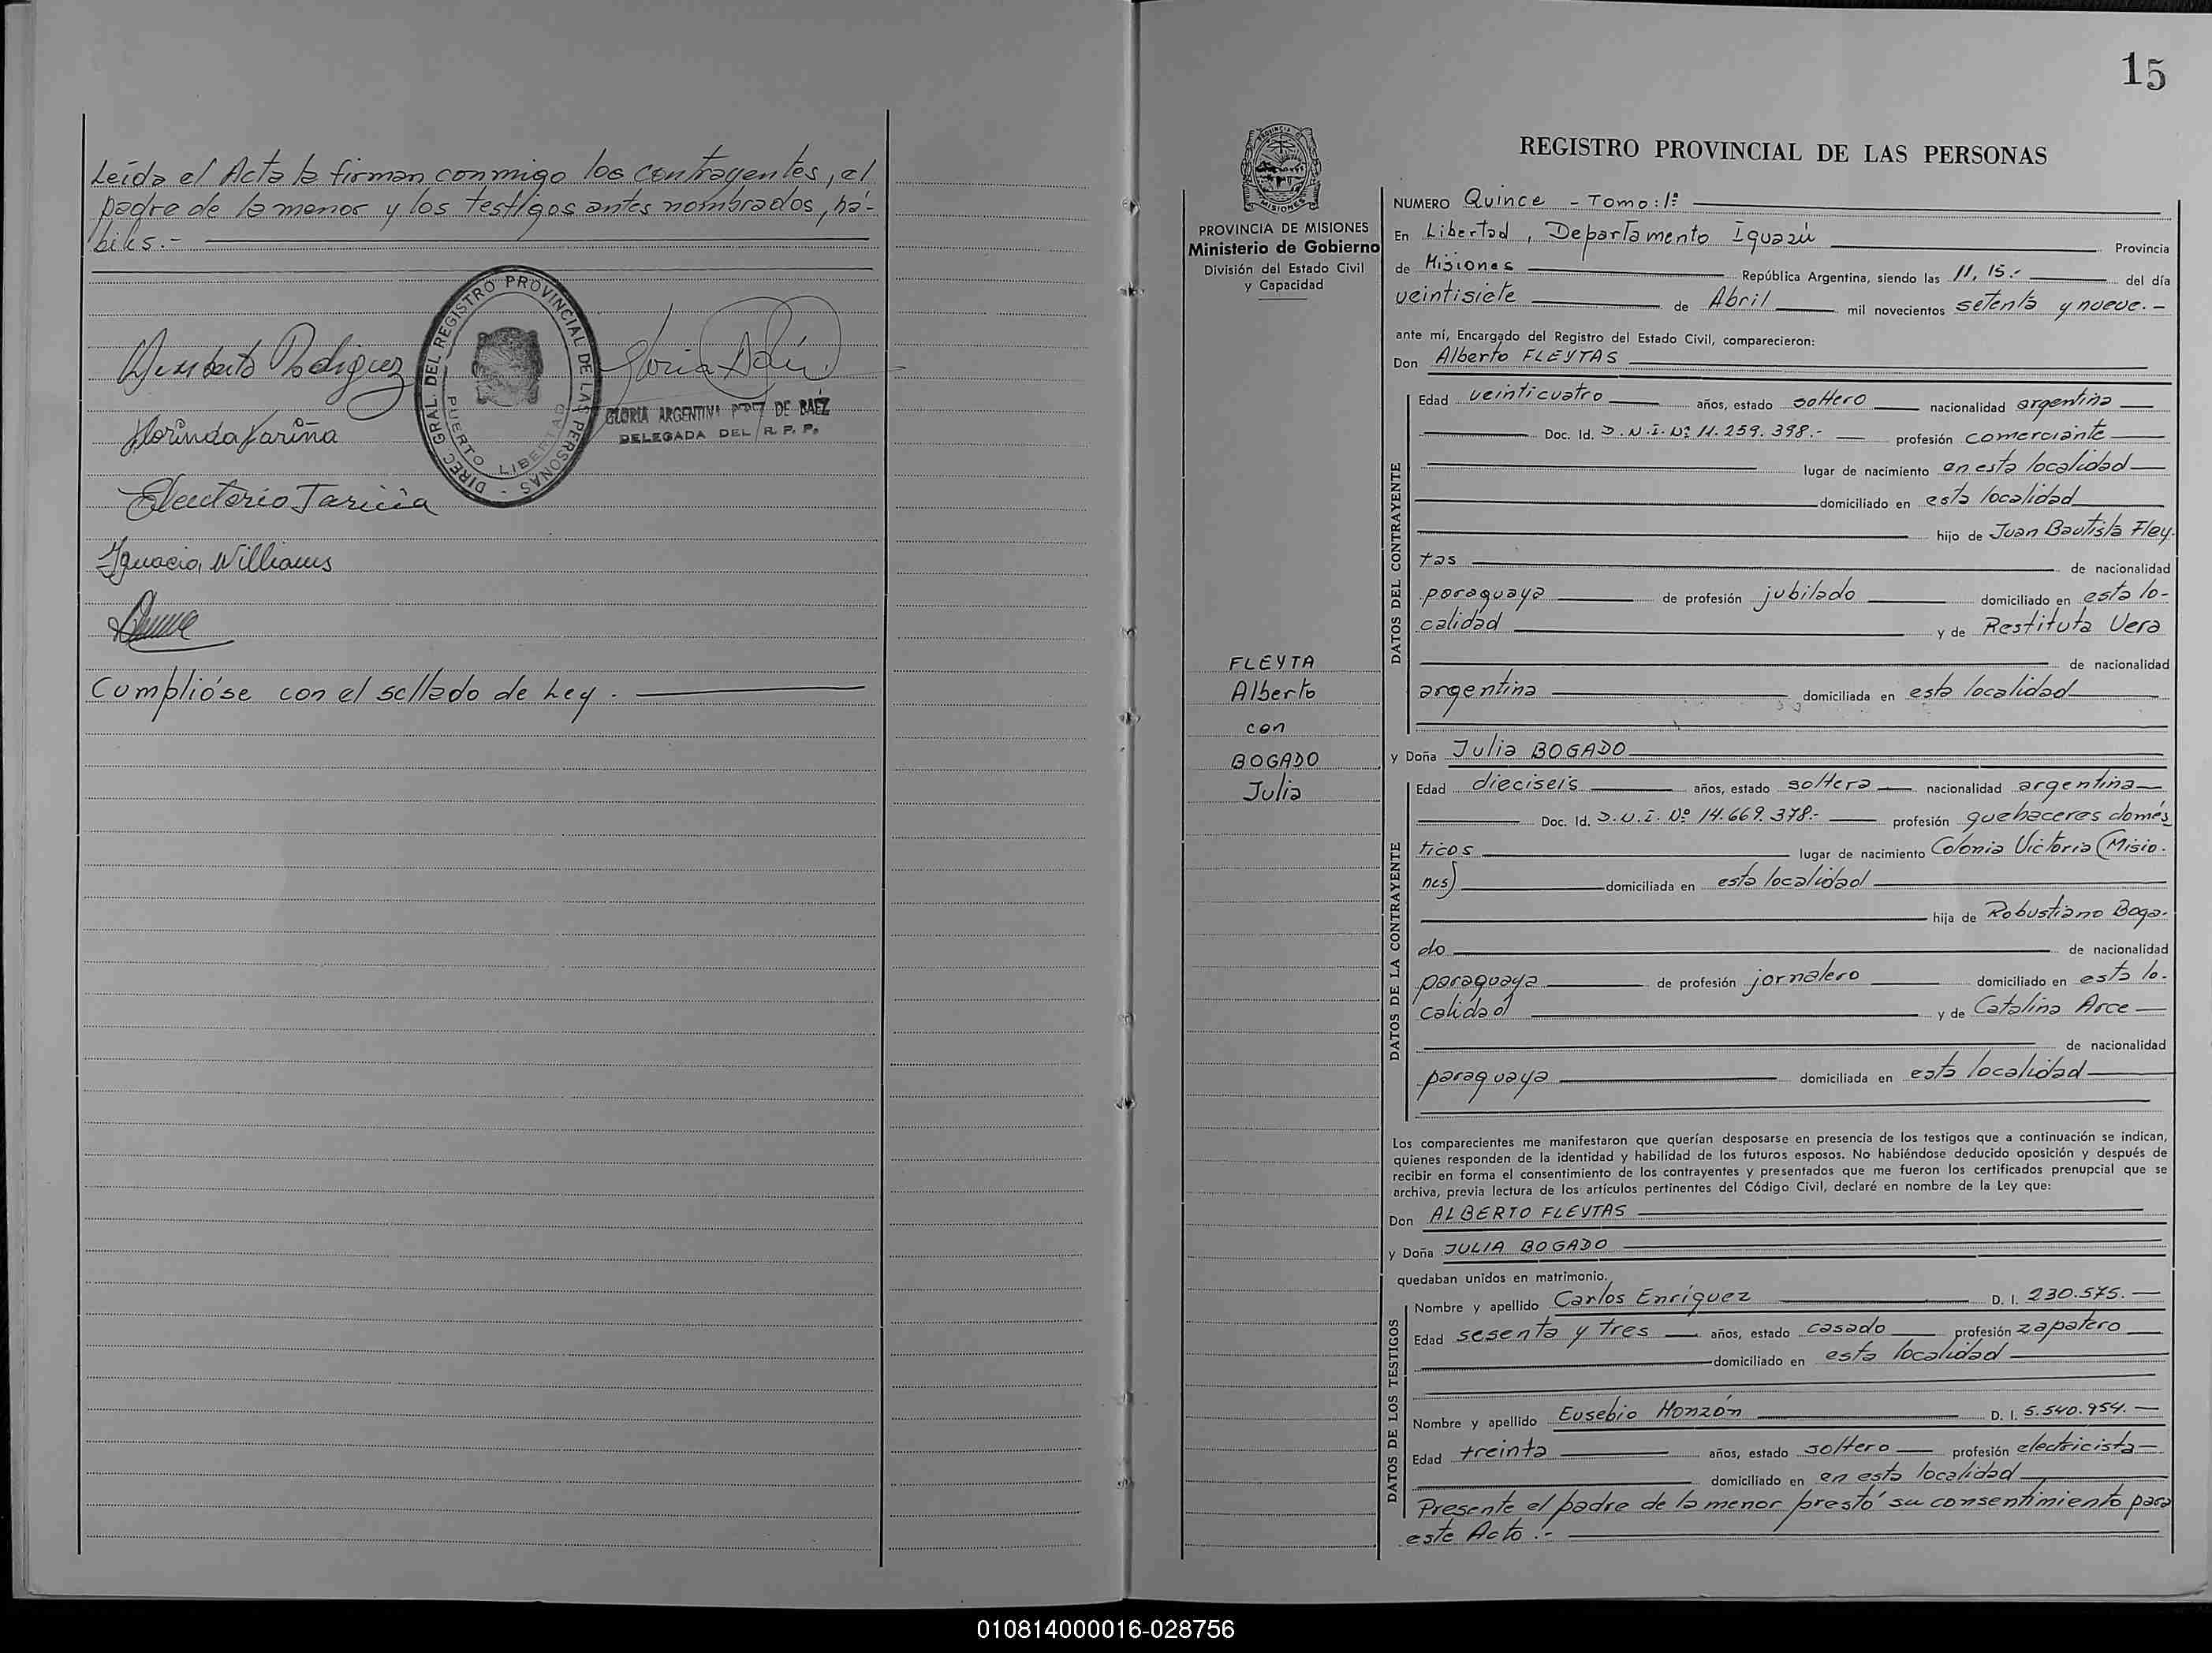 Leída el Acta la firman conmigo los contrayentes, el
padre de la menor y los testigos antes nombrados, há-
biles.-
DIREC. GRAL. DEL REGISTRO PROVINCIAL DE LAS PERSONAS -
PUERTO LIBERTAD
Rodriguez
GLORIA ARGENTINA PEREZ DE BAEZ
DELEGADA DEL R. P. P.
Florinda Fariña
Eleuterio
Ignacio Williams
Cumplióse con el sellado de Ley.
15
PROVINCIA DE MISIONES
Ministerio de Gobierno
División del Estado Civil
y Capacidad
FLEYTA
Alberto
con
BOGADO
Julia
REGISTRO PROVINCIAL DE LAS PERSONAS
NUMERO Quince - Tomo: 1º
En Libertad, Departamento Iguazú Provincia
de Misiones República Argentina, siendo las 11,15.- del día
veintisiete de Abril mil novecientos setenta y nueve.-
ante mí, Encargado del Registro del Estado Civil, comparecieron:
Don Alberto FLEYTAS
DATOS DEL CONTRAYENTE
Edad veinticuatro años, estado soltero nacionalidad argentina
Doc. Id. D.N.I. Nº 11.259.398.- profesión comerciante
lugar de nacimiento en esta localidad
domiciliado en esta localidad
hijo de Juan Bautista Fley-
tas de nacionalidad
paraguaya de profesión jubilado domiciliado en esta lo-
calidad y de Restituta Vera
de nacionalidad
argentina domiciliada en esta localidad
y Doña Julia BOGADO
DATOS DE LA CONTRAYENTE
Edad dieciseis años, estado soltera nacionalidad argentina
Doc. Id. D.N.I. Nº 14.669.378.- profesión quehaceres domés
ticos lugar de nacimiento Colonia Victoria (Misio-
nes) domiciliada en esta localidad
hija de Robustiano Boga-
do de nacionalidad
paraguaya de profesión jornalero domiciliado en esta lo-
calidad y de Catalina Arce
de nacionalidad
paraguaya domiciliada en esta localidad
Los comparecientes me manifestaron que querían desposarse en presencia de los testigos que a continuación se indican,
quienes responden de la identidad y habilidad de los futuros esposos. No habiéndose deducido oposición y después de
recibir en forma el consentimiento de los contrayentes y presentados que me fueron los certificados prenupcial que se
archiva, previa lectura de los artículos pertinentes del Código Civil, declaré en nombre de la Ley que:
Don ALBERTO FLEYTAS
y Doña JULIA BOGADO
quedaban unidos en matrimonio.
DATOS DE LOS TESTIGOS
Nombre y apellido Carlos Enríquez D. I. 230.575.
Edad sesenta y tres años, estado casado profesión zapatero
domiciliado en esta localidad
Nombre y apellido Eusebio Monzón D. I. 5.540.954.
Edad treinta años, estado soltero profesión electricista
domiciliado en en esta localidad
Presente el padre de la menor prestó su consentimiento para
este Acto.-
010814000016-028756